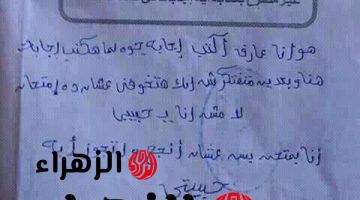 هو أنا عارف أكتب إجابة جوه لما هكتب إجابة
هنا وبعدين متفتكرش إنك هتخوفني عشان ده إمتحان
لا مش أنا يا حبيبي
أنا بمتحن بس عشان أنجح و أتجوز آية
حبيبتي
الزهراء